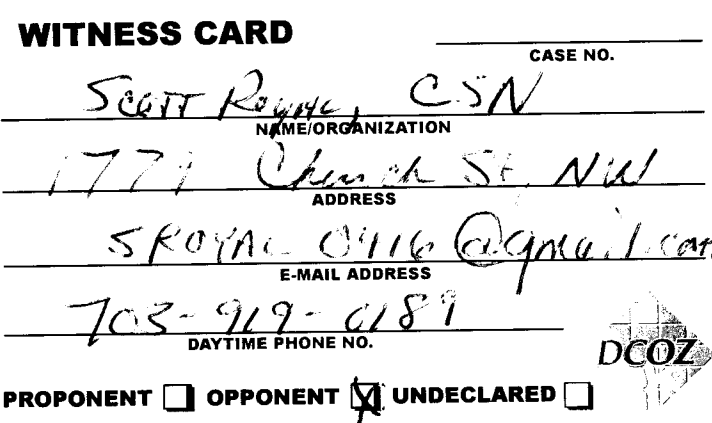 WITNESS CARD
CASE NO.
Scott Royal, CSN
NAME/ORGANIZATION
Church St, NW
ADDRESS
SROYAL0416@gmail.com
E-MAIL ADDRESS
703-919-0189
DAYTIME PHONE NO.
DCOZ
PROPONENT ☐ OPPONENT ☒ UNDECLARED ☐